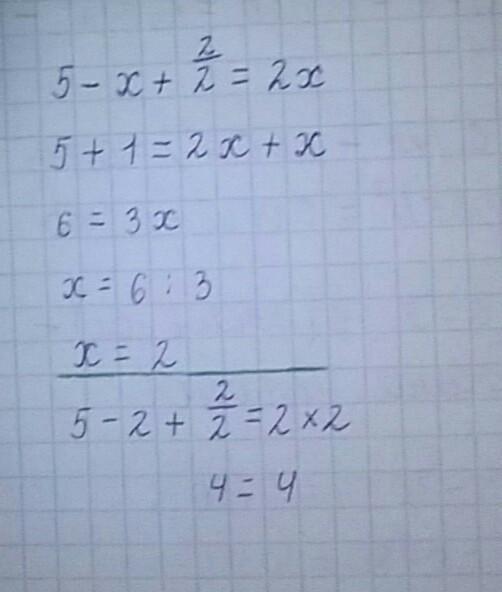 5 - x + 2/2 = 2x
5 + 1 = 2x + x
6 = 3x
x = 6 : 3
x = 2
5 - 2 + 2/2 = 2 × 2
4 = 4